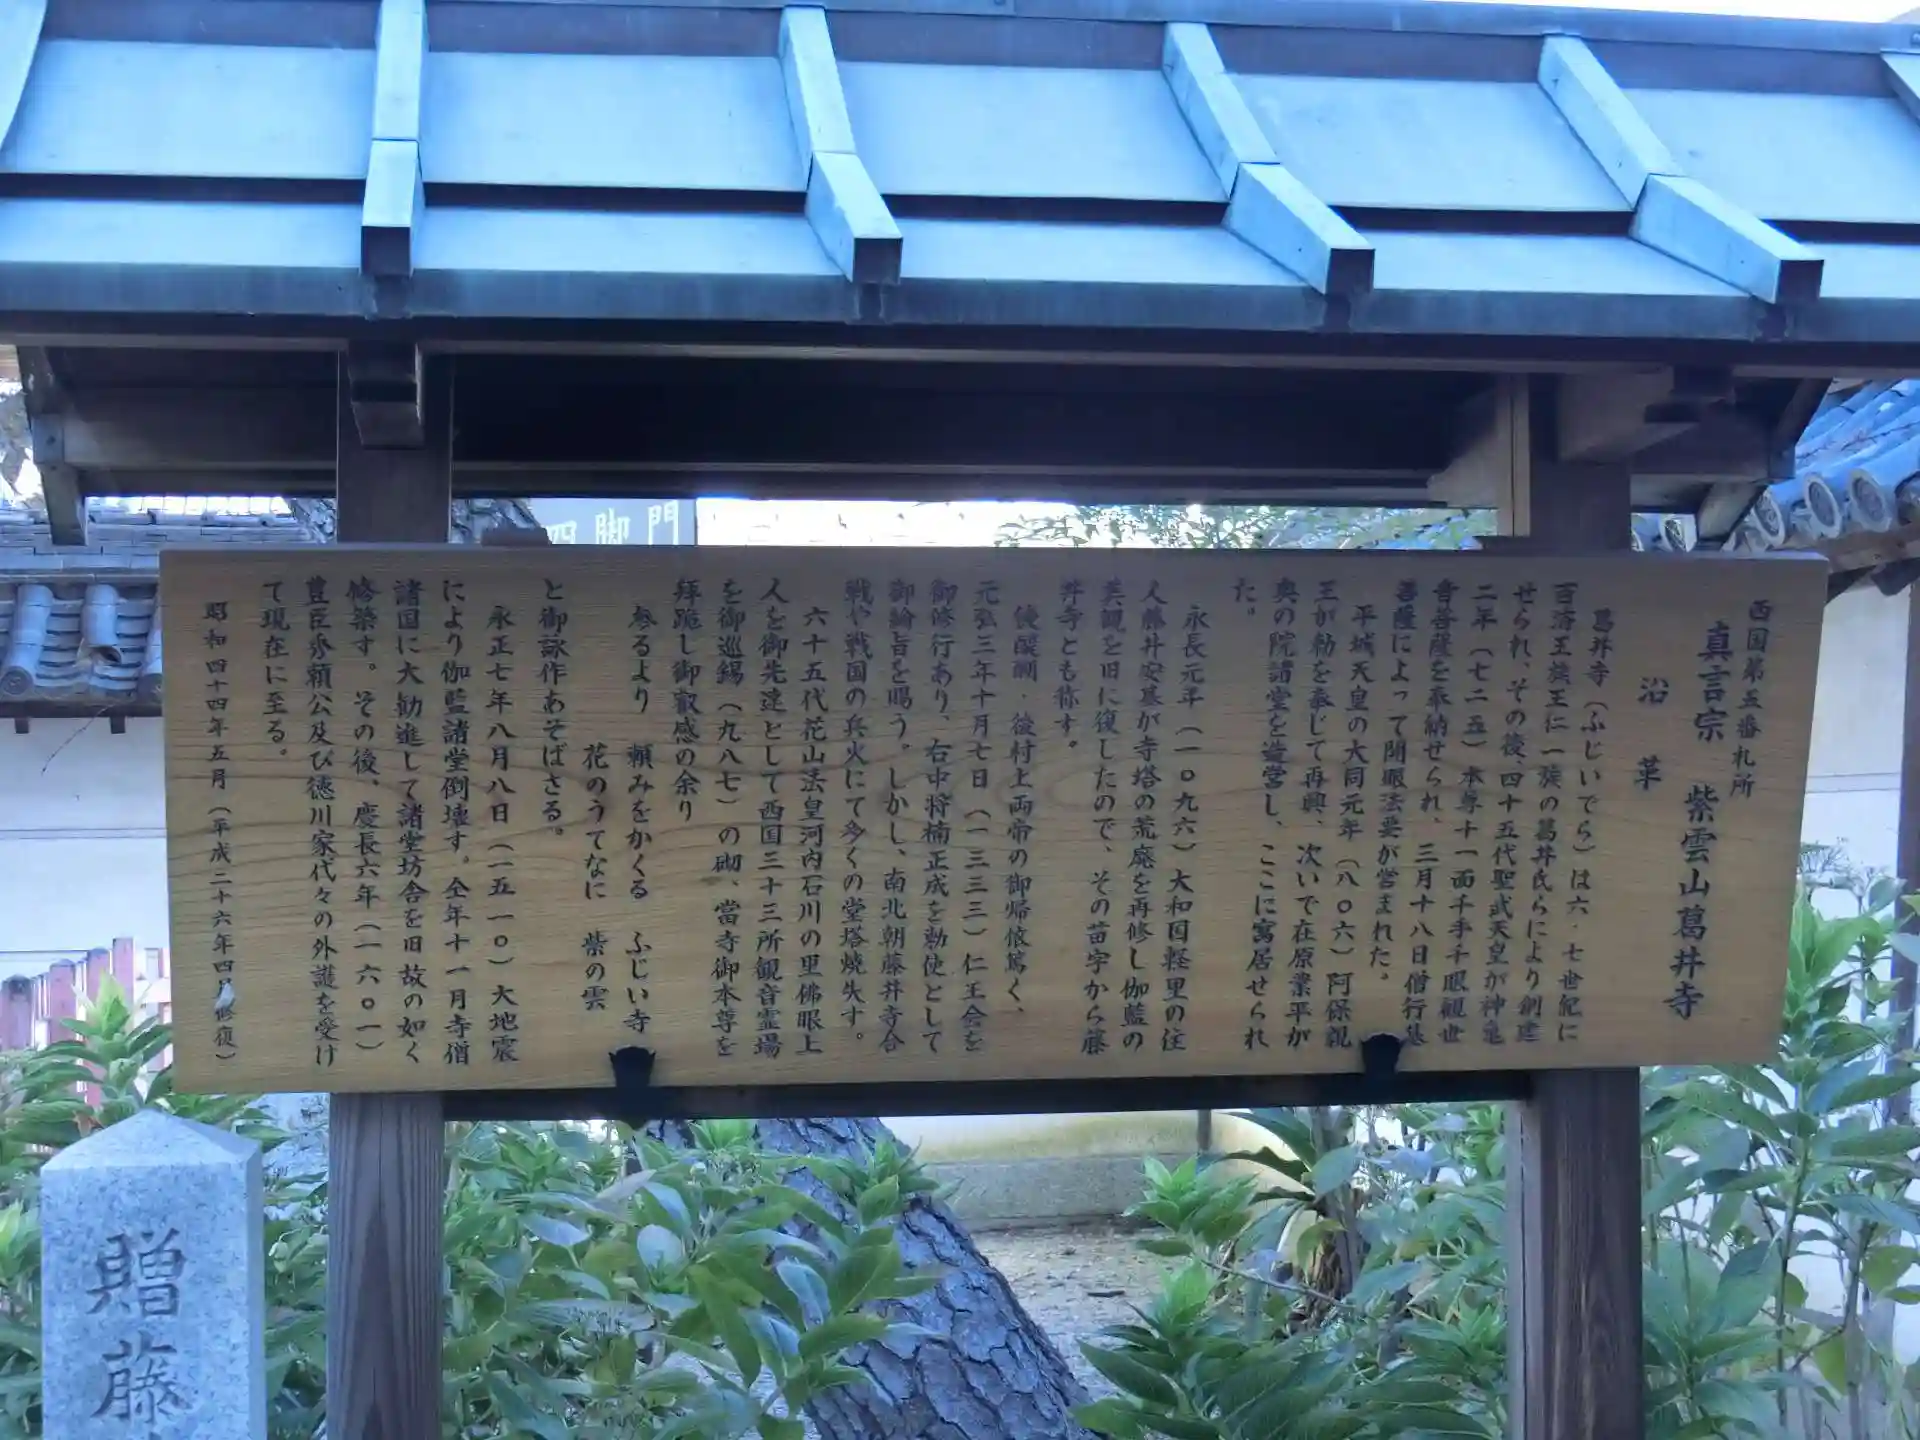 西国第五番札所
真言宗 紫雲山葛井寺
沿革
葛井寺（ふじいでら）は六・七世紀に
百済王族王仁一族の葛井氏らにより創建
せられ、その後、四十五代聖武天皇が神亀
二年（七二五）本尊十一面千手千眼観世
音菩薩を奉納せられ、三月十八日僧行基
菩薩によって開眼法要が営まれた。
平城天皇の大同元年（八〇六）阿保親
王が勅を奉じて再興、次いで在原業平が
奥の院諸堂を造営し、ここに寓居せられ
た。
永長元年（一〇九六）大和国軽里の住
人藤井安基が寺塔の荒廃を再修し伽藍の
美観を旧に復したので、その苗字から藤
井寺とも称す。
後醍醐・後村上両帝の御帰依篤く、
元弘三年十月七日（一三三三）仁王会を
御修行あり、右中将楠正成を勅使として
御綸旨を賜う。しかし、南北朝藤井寺合
戦や戦国の兵火にて多くの堂塔焼失す。
六十五代花山法皇河内石川の里佛眼上
人を御先達として西国三十三所観音霊場
を御巡錫（九八七）の砌、當寺御本尊を
拝跪し御叡感の余り
参るより 頼みをかくる ふじい寺
花のうてなに 紫の雲
と御詠作あそばさる。
永正七年八月八日（一五一〇）大地震
により伽藍諸堂倒壊す。仝年十一月寺僧
諸国に大勧進して諸堂坊舎を旧故の如く
修築す。その後、慶長六年（一六〇一）
豊臣秀頼公及び徳川家代々の外護を受け
て現在に至る。
昭和四十四年五月（平成二十六年四月修復）
四脚門
贈藤